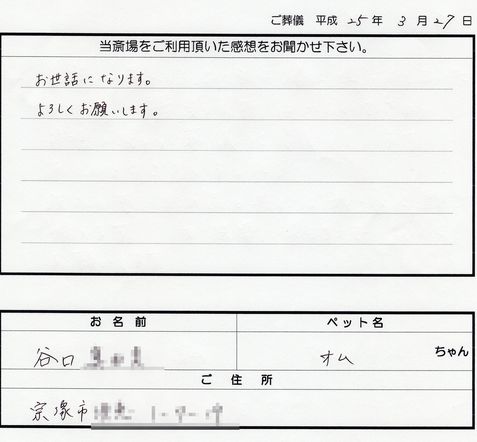 ご葬儀 平成 25 年 3 月 27 日
当斎場をご利用頂いた感想をお聞かせ下さい。
お世話になります。
よろしくお願いします。
お名前 ペット名
谷口 オム ちゃん
ご住所
宗像市